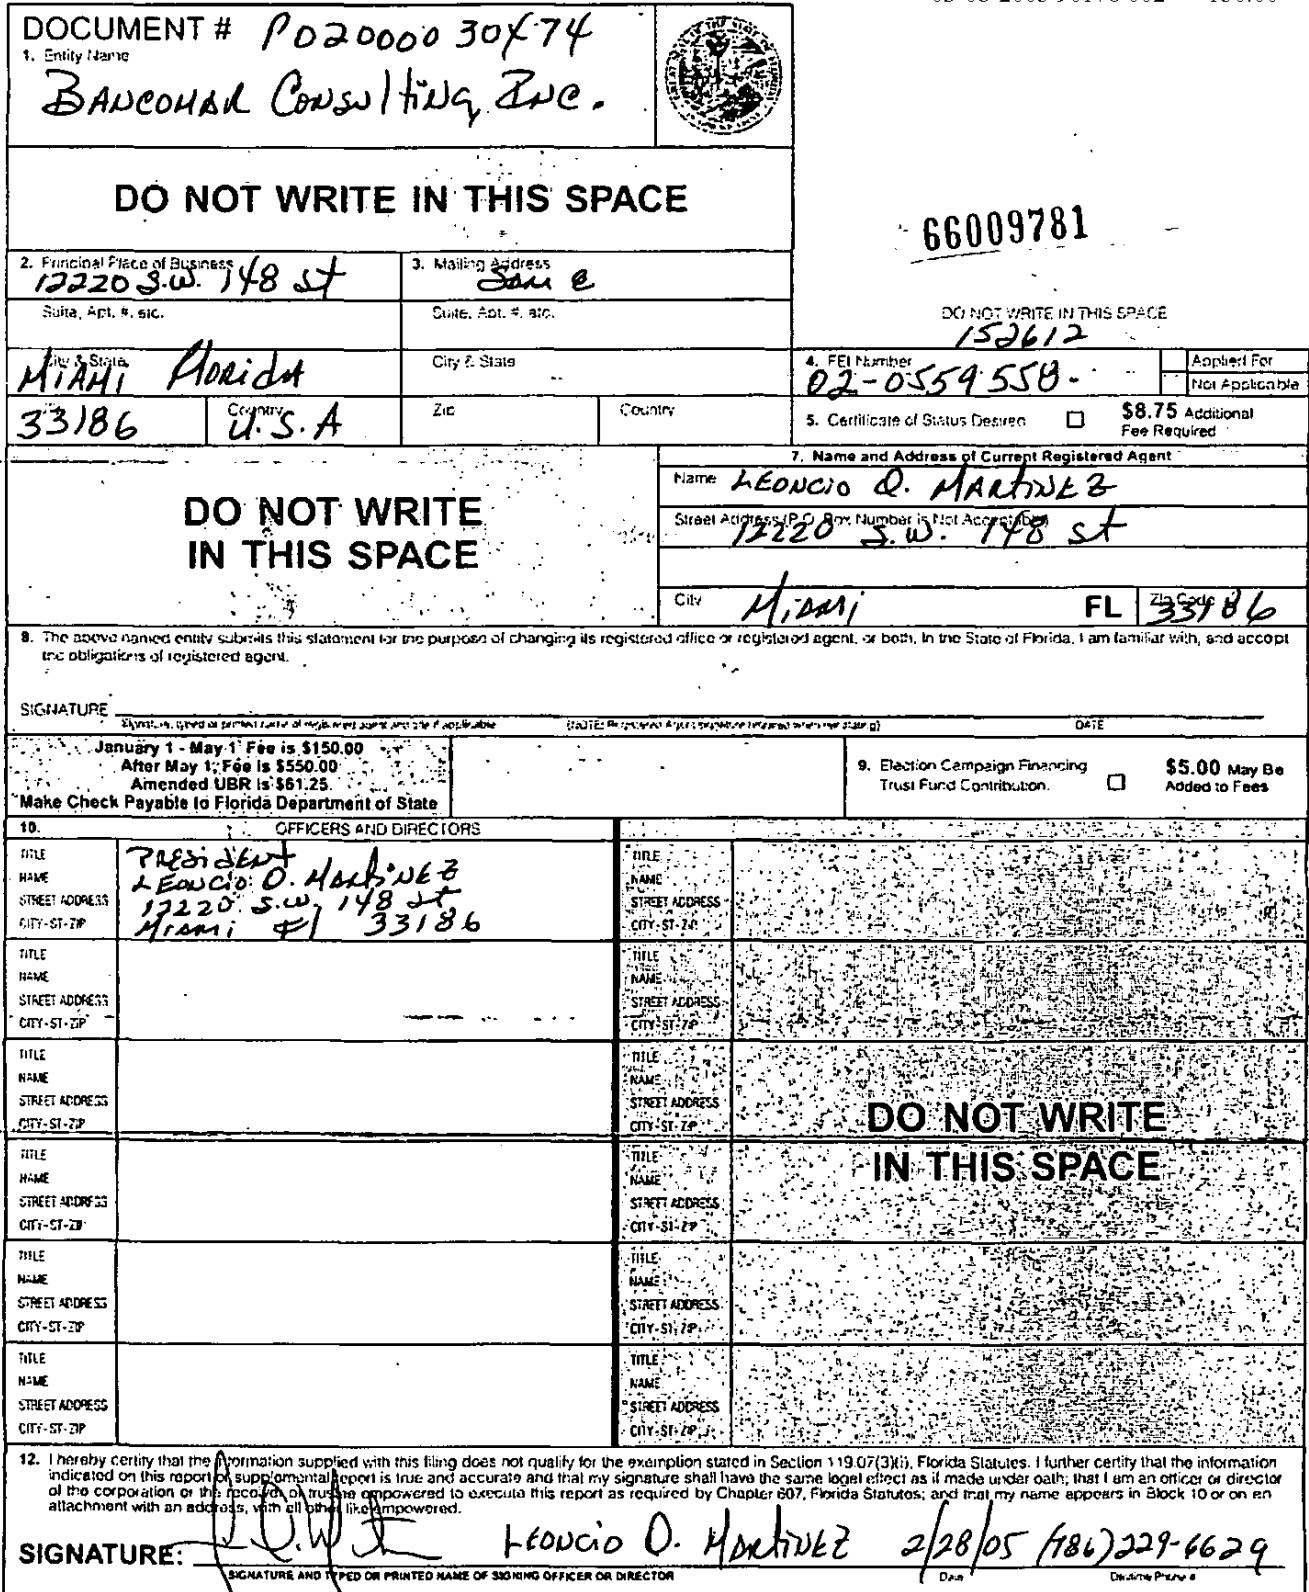 DOCUMENT # P02000030474
1. Entity Name
BANCOMAR CONSULTING, INC.
DO NOT WRITE IN THIS SPACE
66009781
2. Principal Place of Business
12220 S.W. 148 St
3. Mailing Address
Same
Suite, Apt. #, etc.
Suite, Apt. #, etc.
DO NOT WRITE IN THIS SPACE
152612
City & State
MIAMI Florida
City & State
4. FEI Number
02-0559558
Applied For
Not Applicable
33186
Country
U.S.A
Zip
Country
5. Certificate of Status Desired
$8.75 Additional
Fee Required
DO NOT WRITE
IN THIS SPACE
7. Name and Address of Current Registered Agent
Name LEONCIO O. MARTINEZ
Street Address (P.O. Box Number is Not Acceptable)
12220 S.W. 148 St
City Miami FL Zip Code 33186
8. The above named entity submits this statement for the purpose of changing its registered office or registered agent, or both, in the State of Florida. I am familiar with, and accept
the obligations of registered agent.
SIGNATURE
Signature, typed or printed name of registered agent and title if applicable
(NOTE: Registered Agent signature required when reinstating)
DATE
January 1 - May 1 Fee is $150.00
After May 1, Fee is $550.00
Amended UBR is $61.25
Make Check Payable to Florida Department of State
9. Election Campaign Financing
Trust Fund Contribution.
$5.00 May Be
Added to Fees
10. OFFICERS AND DIRECTORS
TITLE PRESIDENT
NAME LEONCIO O. MARTINEZ
STREET ADDRESS 12220 S.W. 148 St
CITY-ST-ZIP Miami Fl 33186
TITLE
NAME
STREET ADDRESS
CITY-ST-ZIP
TITLE
NAME
STREET ADDRESS
CITY-ST-ZIP
TITLE
NAME
STREET ADDRESS
CITY-ST-ZIP
TITLE
NAME
STREET ADDRESS
CITY-ST-ZIP
TITLE
NAME
STREET ADDRESS
CITY-ST-ZIP
TITLE
NAME
STREET ADDRESS
CITY-ST-ZIP
TITLE
NAME
STREET ADDRESS
CITY-ST-ZIP
TITLE
NAME
STREET ADDRESS
CITY-ST-ZIP
TITLE
NAME
STREET ADDRESS
CITY-ST-ZIP
TITLE
NAME
STREET ADDRESS
CITY-ST-ZIP
TITLE
NAME
STREET ADDRESS
CITY-ST-ZIP
DO NOT WRITE
IN THIS SPACE
12. I hereby certify that the information supplied with this filing does not qualify for the exemption stated in Section 119.07(3)(i), Florida Statutes. I further certify that the information
indicated on this report or supplemental report is true and accurate and that my signature shall have the same legal effect as if made under oath; that I am an officer or director
of the corporation or the receiver or trustee empowered to execute this report as required by Chapter 607, Florida Statutes; and that my name appears in Block 10 or on an
attachment with an address, with all other like empowered.
SIGNATURE: LEONCIO O. MARTINEZ 2/28/05 (786)229-6629
SIGNATURE AND TYPED OR PRINTED NAME OF SIGNING OFFICER OR DIRECTOR
Date
Daytime Phone #